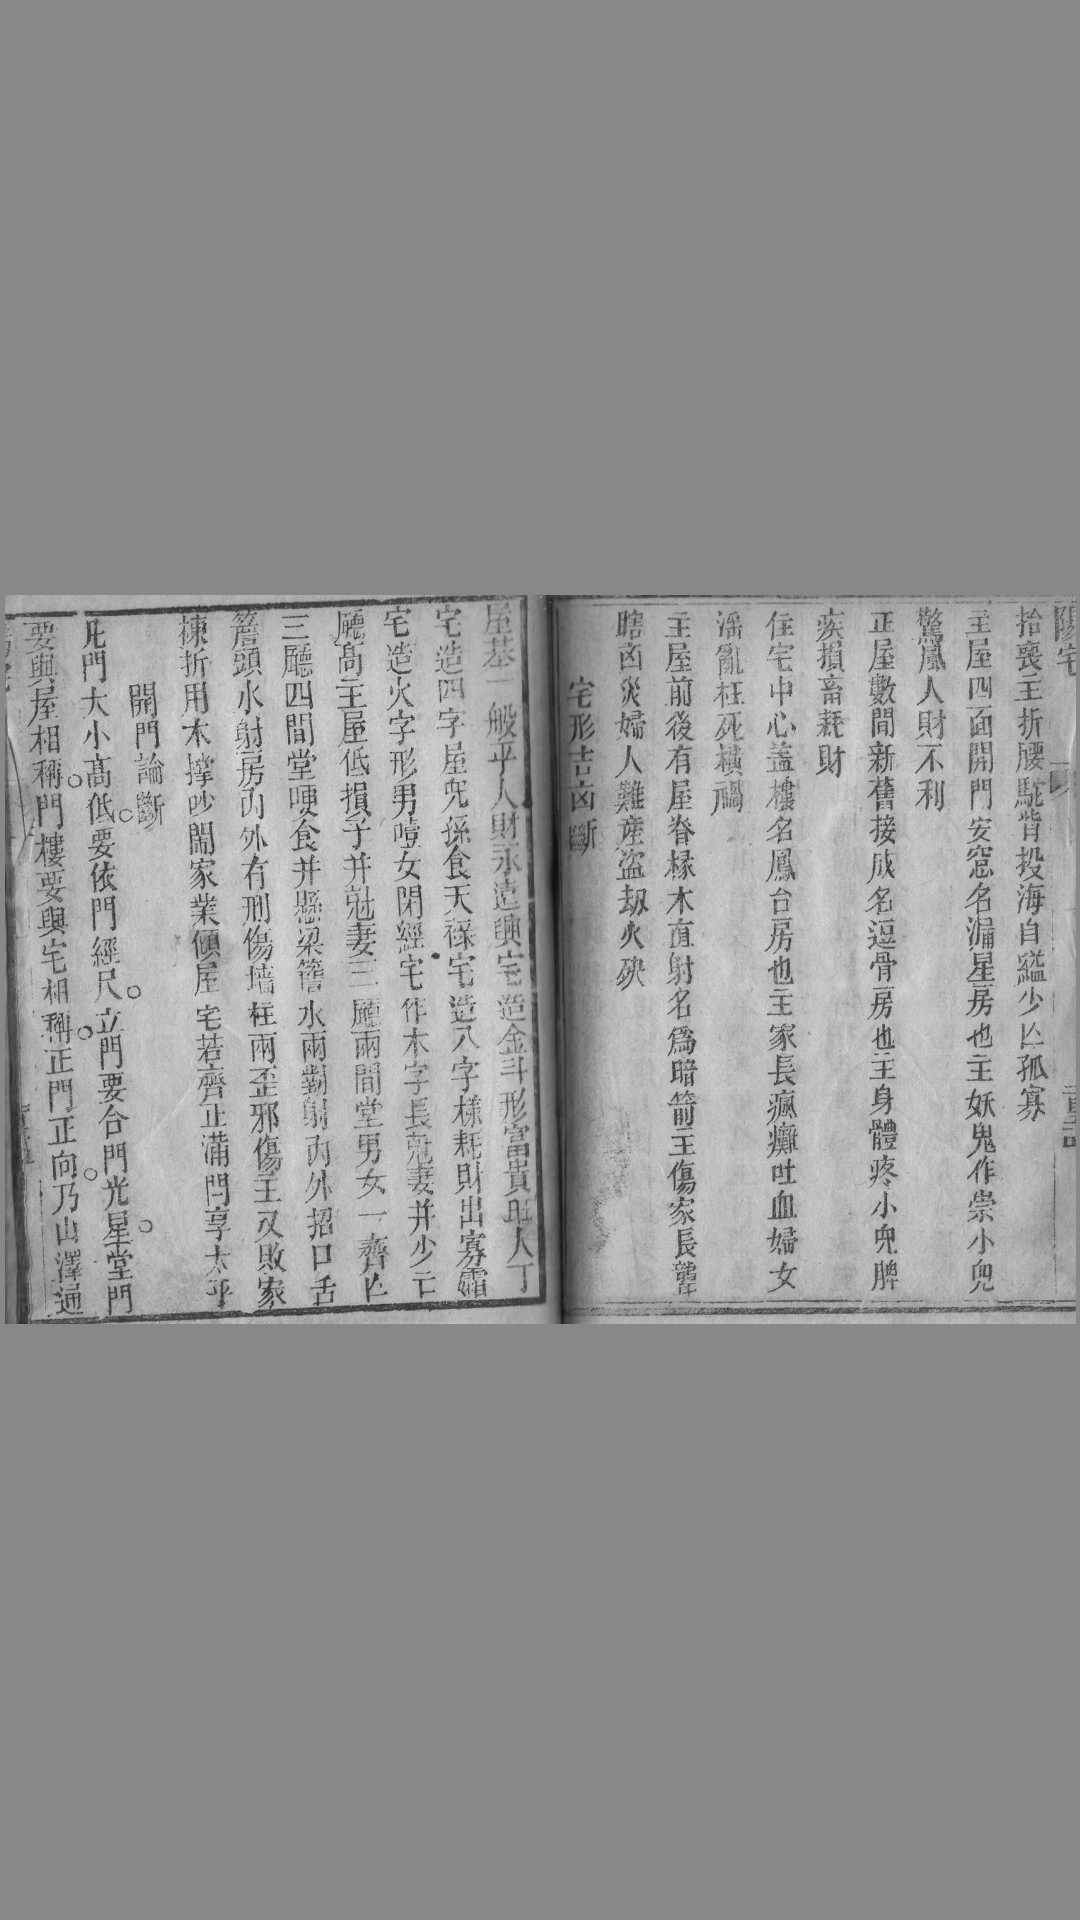 陽宅
抬喪主折腰駝背投海自縊少亡孤寡
主屋四面開門安窓名漏星房也主妖鬼作祟小兒
驚風人財不利
正屋數間新舊接成名逗骨房也主身體疼小兒脾
疾損畜耗財
住宅中心盖樓名鳳台房也主家長瘋癱吐血婦女
滛亂枉死橫禍
主屋前後有屋脊椽木直射名爲暗箭主傷家長聾
瞎凶災婦人難産盗刼火殃
宅形吉凶斷
屋基一般平人財永遠興宅造金斗形富貴旺人丁
宅造四字屋兒孫食天祿宅造八字樣耗財出寡孀
宅造火字形男噎女閉經宅作木字長尅妻并少亡
廳高主屋低損子并尅妻三廳兩間堂男女一齊亡
三廳四間堂哽食并懸梁簷水兩對射內外招口舌
簷頭水射房內外有刑傷墙柱兩歪邪傷主又敗家
棟折用木撑吵鬧家業傾屋宅若齊正滿門享太平
開門論斷
凡門大小高低要依門經尺立門要合門光星堂門
要與屋相稱門樓要與宅相稱正門正向乃山澤通